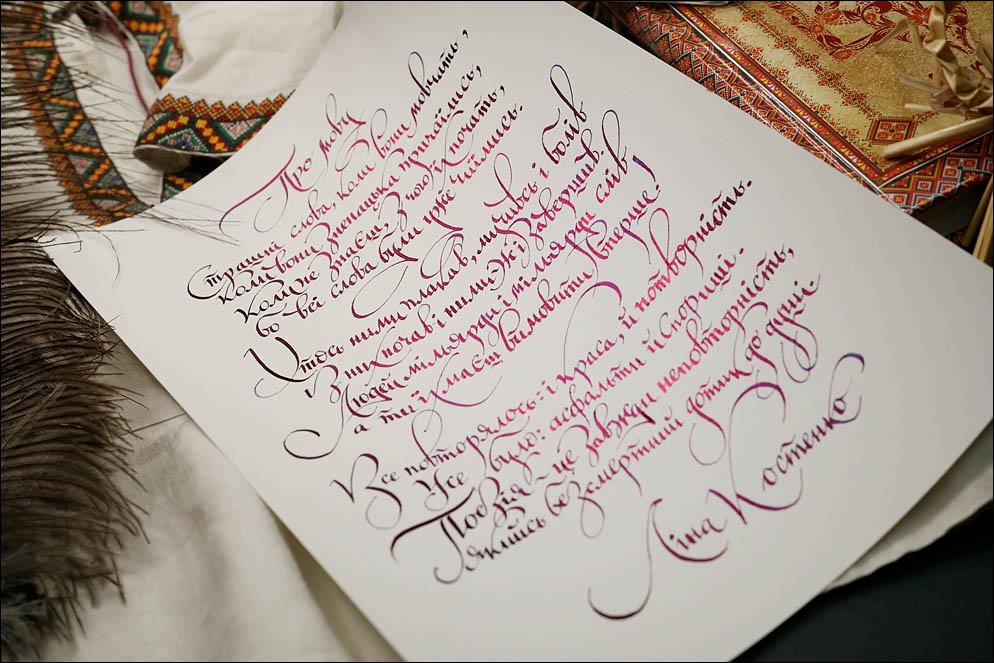 Про мову
Страшні слова, коли вони мовчать,
коли вони зненацька причаїлись,
коли не знаєш, з чого їх почать,
бо всі слова були уже чиїмись.
Хтось ними плакав, мучивсь і болів
Із них почав і ними ж і завершив.
Людей мільярди і мільярди слів
а ти їх маєш вимовити вперше!
Все повторялось: і краса, й потворність.
Усе було: асфальти й спориші.
Поезія ~ це завжди неповторність,
якийсь безсмертний дотик до душі
Ліна Костенко